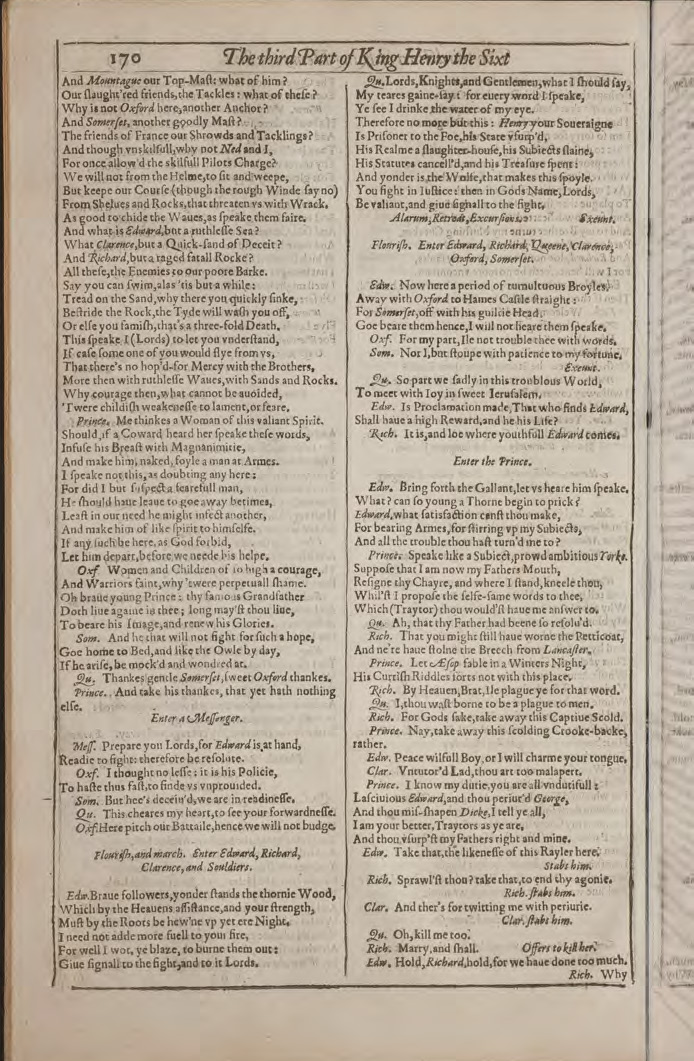 170
The third Part of King Henry the Sixt
And Mountague our Top-Maſt: what of him?
Our ſlaught'red friends, the Tackles: what of theſe?
Why is not Oxford here, another Anchor?
And Somerſet, another goodly Maſt?
The friends of France our Shrowds and Tacklings?
And though vnskilfull, why not Ned and I,
For once allow'd the skilfull Pilots Charge?
We will not from the Helme, to ſit and weepe,
But keepe our Courſe (though the rough Winde ſay no)
From Shelues and Rocks, that threaten vs with Wrack.
As good to chide the Waues, as ſpeake them faire.
And what is Edward, but a ruthleſſe Sea?
What Clarence, but a Quick-ſand of Deceit?
And Richard, but a raged fatall Rocke?
All theſe, the Enemies to our poore Barke.
Say you can ſwim, alas 'tis but a while:
Tread on the Sand, why there you quickly ſinke,
Beſtride the Rock, the Tyde will waſh you off,
Or elſe you famiſh, that's a three-fold Death.
This ſpeake I (Lords) to let you vnderſtand,
If caſe ſome one of you would flye from vs,
That there's no hop'd-for Mercy with the Brothers,
More then with ruthleſſe Waues, with Sands and Rocks.
Why courage then, what cannot be auoided,
'Twere childiſh weakeneſſe to lament, or feare.
Prince. Me thinkes a Woman of this valiant Spirit,
Should, if a Coward heard her ſpeake theſe words,
Infuſe his Breaſt with Magnanimitie,
And make him, naked, foyle a man at Armes.
I ſpeake not this, as doubting any here:
For did I but ſuſpect a fearefull man,
He ſhould haue leaue to goe away betimes,
Leaſt in our need he might infect another,
And make him of like ſpirit to himſelfe.
If any ſuch be here, as God forbid,
Let him depart, before we neede his helpe.
Oxf. Women and Children of ſo high a courage,
And Warriors faint, why 'twere perpetuall ſhame.
Oh braue young Prince: thy famous Grandfather
Doth liue againe in thee; long may'ſt thou liue,
To beare his Image, and renew his Glories.
Som. And he that will not fight for ſuch a hope,
Goe home to Bed, and like the Owle by day,
If he ariſe, be mock'd and wondred at.
Qu. Thankes gentle Somerſet, ſweet Oxford thankes.
Prince. And take his thankes, that yet hath nothing
elſe.
Enter a Meſſenger.
Meſſ. Prepare you Lords, for Edward is at hand,
Readie to fight: therefore be reſolute.
Oxf. I thought no leſſe: it is his Policie,
To haſte thus faſt, to finde vs vnprouided.
Som. But hee's deceiu'd, we are in readineſſe.
Qu. This cheares my heart, to ſee your forwardneſſe.
Oxf. Here pitch our Battaile, hence we will not budge.
Flouriſh, and march. Enter Edward, Richard,
Clarence, and Souldiers.
Edw. Braue followers, yonder ſtands the thornie Wood,
Which by the Heauens aſſiſtance, and your ſtrength,
Muſt by the Roots be hew'ne vp yet ere Night.
I need not adde more fuell to your fire,
For well I wot, ye blaze, to burne them out:
Giue ſignall to the fight, and to it Lords.
Qu. Lords, Knights, and Gentlemen, what I ſhould ſay,
My teares gaine-ſay: for euery word I ſpeake,
Ye ſee I drinke the water of my eye.
Therefore no more but this: Henry your Soueraigne
Is Priſoner to the Foe, his State vſurp'd,
His Realme a ſlaughter-houſe, his Subiects ſlaine,
His Statutes cancell'd, and his Treaſure ſpent:
And yonder is the Wolfe, that makes this ſpoyle.
You fight in Iuſtice: then in Gods Name, Lords,
Be valiant, and giue ſignall to the fight.
Alarum, Retreat, Excurſions. Exeunt.
Flouriſh. Enter Edward, Richard, Queene, Clarence,
Oxford, Somerſet.
Edw. Now here a period of tumultuous Broyles.
Away with Oxford to Hames Caſtle ſtraight:
For Somerſet, off with his guiltie Head.
Goe beare them hence, I will not heare them ſpeake.
Oxf. For my part, Ile not trouble thee with words.
Som. Nor I, but ſtoupe with patience to my fortune.
Exeunt.
Qu. So part we ſadly in this troublous World,
To meet with Ioy in ſweet Ieruſalem.
Edw. Is Proclamation made, That who finds Edward,
Shall haue a high Reward, and he his Life?
Rich. It is, and loe where youthfull Edward comes.
Enter the Prince.
Edw. Bring forth the Gallant, let vs heare him ſpeake.
What? can ſo young a Thorne begin to prick?
Edward, what ſatisfaction canſt thou make,
For bearing Armes, for ſtirring vp my Subiects,
And all the trouble thou haſt turn'd me to?
Prince. Speake like a Subiect, prowd ambitious Yorke.
Suppoſe that I am now my Fathers Mouth,
Reſigne thy Chayre, and where I ſtand, kneele thou,
Whil'ſt I propoſe the ſelfe-ſame words to thee,
Which (Traytor) thou would'ſt haue me anſwer to.
Qu. Ah, that thy Father had beene ſo reſolu'd.
Rich. That you might ſtill haue worne the Petticoat,
And ne're haue ſtolne the Breech from Lancaſter.
Prince. Let Æſop fable in a Winters Night,
His Curriſh Riddles ſorts not with this place.
Rich. By Heauen, Brat, Ile plague ye for that word.
Qu. I, thou waſt borne to be a plague to men.
Rich. For Gods ſake, take away this Captiue Scold.
Prince. Nay, take away this ſcolding Crooke-backe,
rather.
Edw. Peace wilfull Boy, or I will charme your tongue.
Clar. Vntutor'd Lad, thou art too malapert.
Prince. I know my dutie, you are all vndutifull:
Laſciuious Edward, and thou periur'd George,
And thou miſ-ſhapen Dicke, I tell ye all,
I am your better, Traytors as ye are,
And thou vſurp'ſt my Fathers right and mine.
Edw. Take that, the likeneſſe of this Rayler here.
Stabs him.
Rich. Sprawl'ſt thou? take that, to end thy agonie.
Rich. ſtabs him.
Clar. And ther's for twitting me with periurie.
Clar. ſtabs him.
Qu. Oh, kill me too.
Rich. Marry, and ſhall. Offers to kill her.
Edw. Hold, Richard, hold, for we haue done too much.
Rich. Why